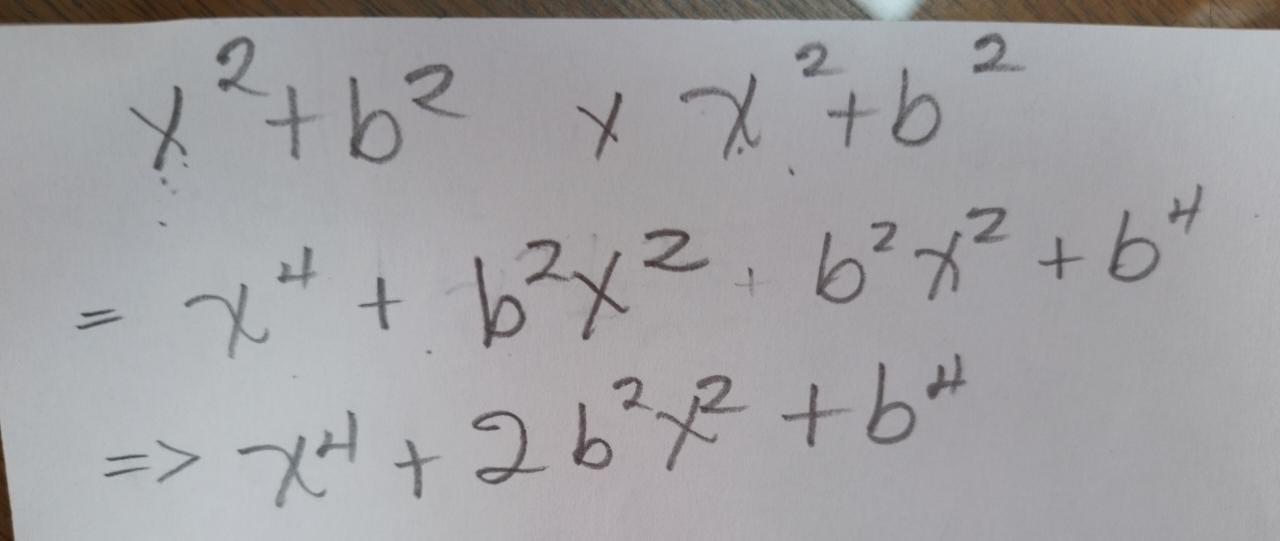 x² + b² x x² + b²
= x⁴ + b²x² + b²x² + b⁴
=> x⁴ + 2b²x² + b⁴